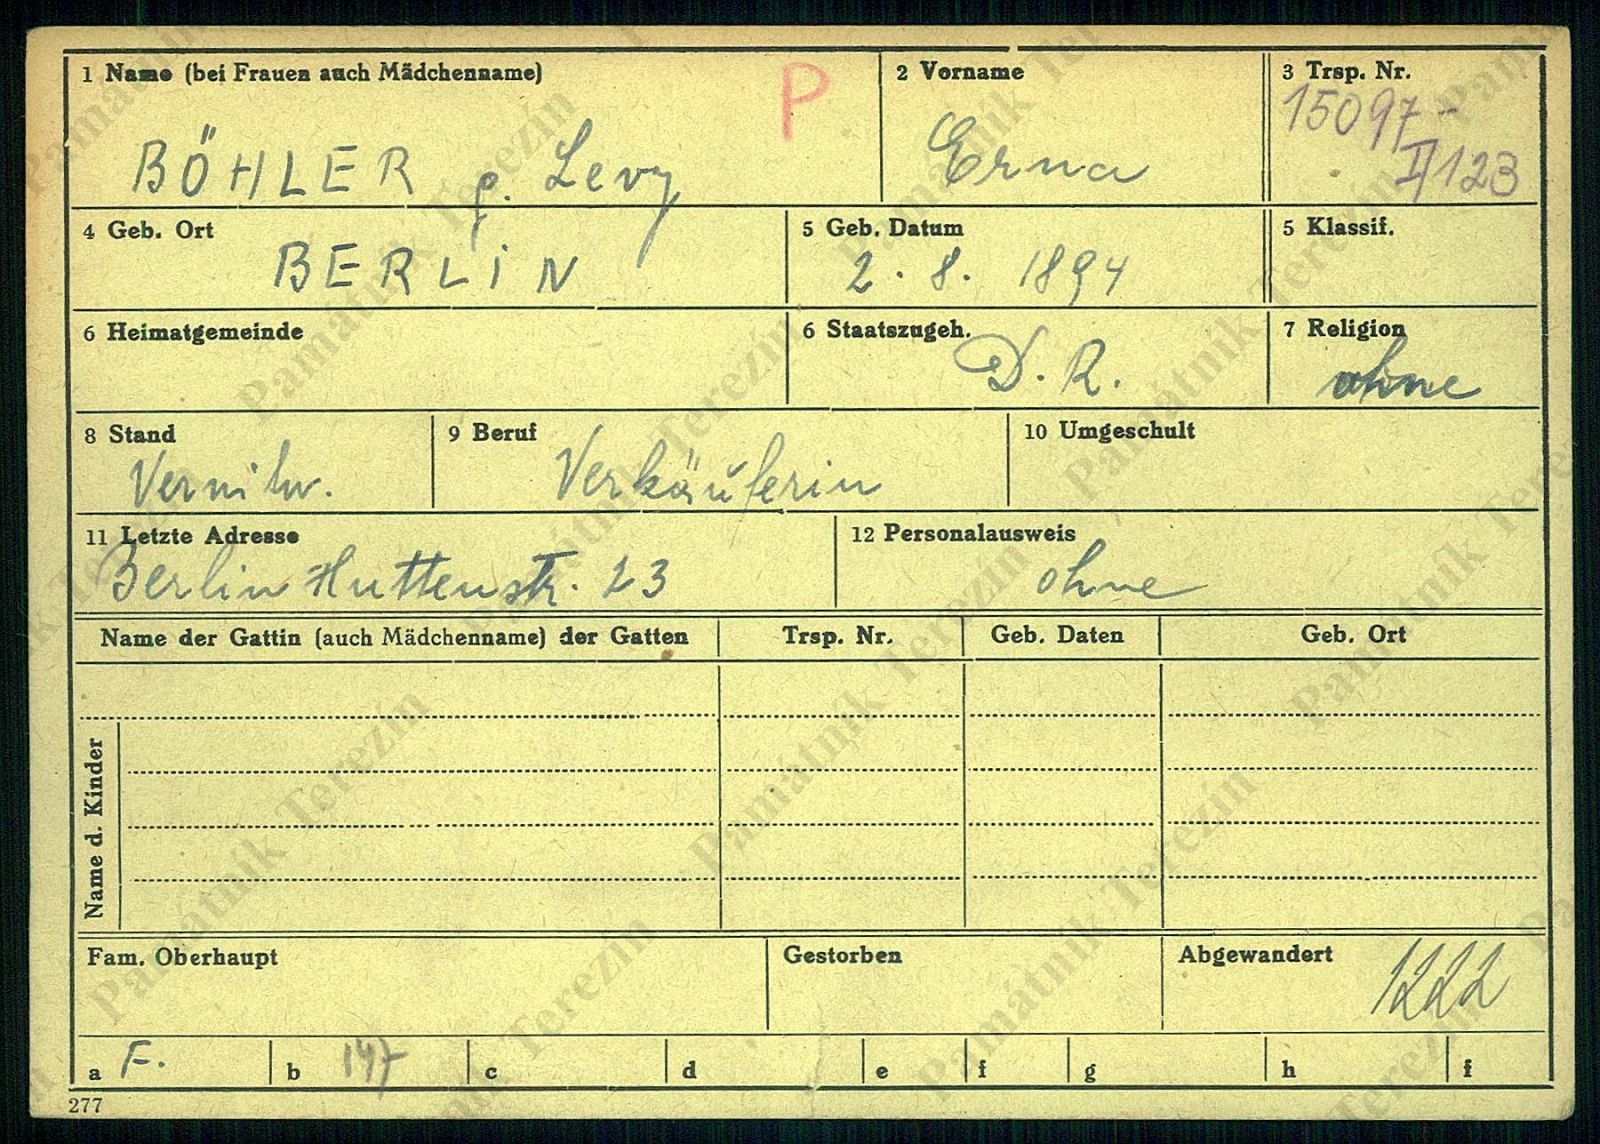 1 Name (bei Frauen auch Mädchenname)
P
BÖHLER g. Levy
2 Vorname
Erna
3 Trsp. Nr.
15097-
II/123
4 Geb. Ort
BERLIN
5 Geb. Datum
2. 8. 1894
5 Klassif.
6 Heimatgemeinde
6 Staatszugeh.
D. R.
7 Religion
ohne
8 Stand
Verwitw.
9 Beruf
Verkäuferin
10 Umgeschult
11 Letzte Adresse
Berlin Huttenstr. 23
12 Personalausweis
ohne
Name der Gattin (auch Mädchenname) der Gatten
Trsp. Nr.
Geb. Daten
Geb. Ort
Name d. Kinder
Fam. Oberhaupt
Gestorben
Abgewandert
1222
a F.
b 147
c
d
e
f
g
h
f
277
Památník Terezín